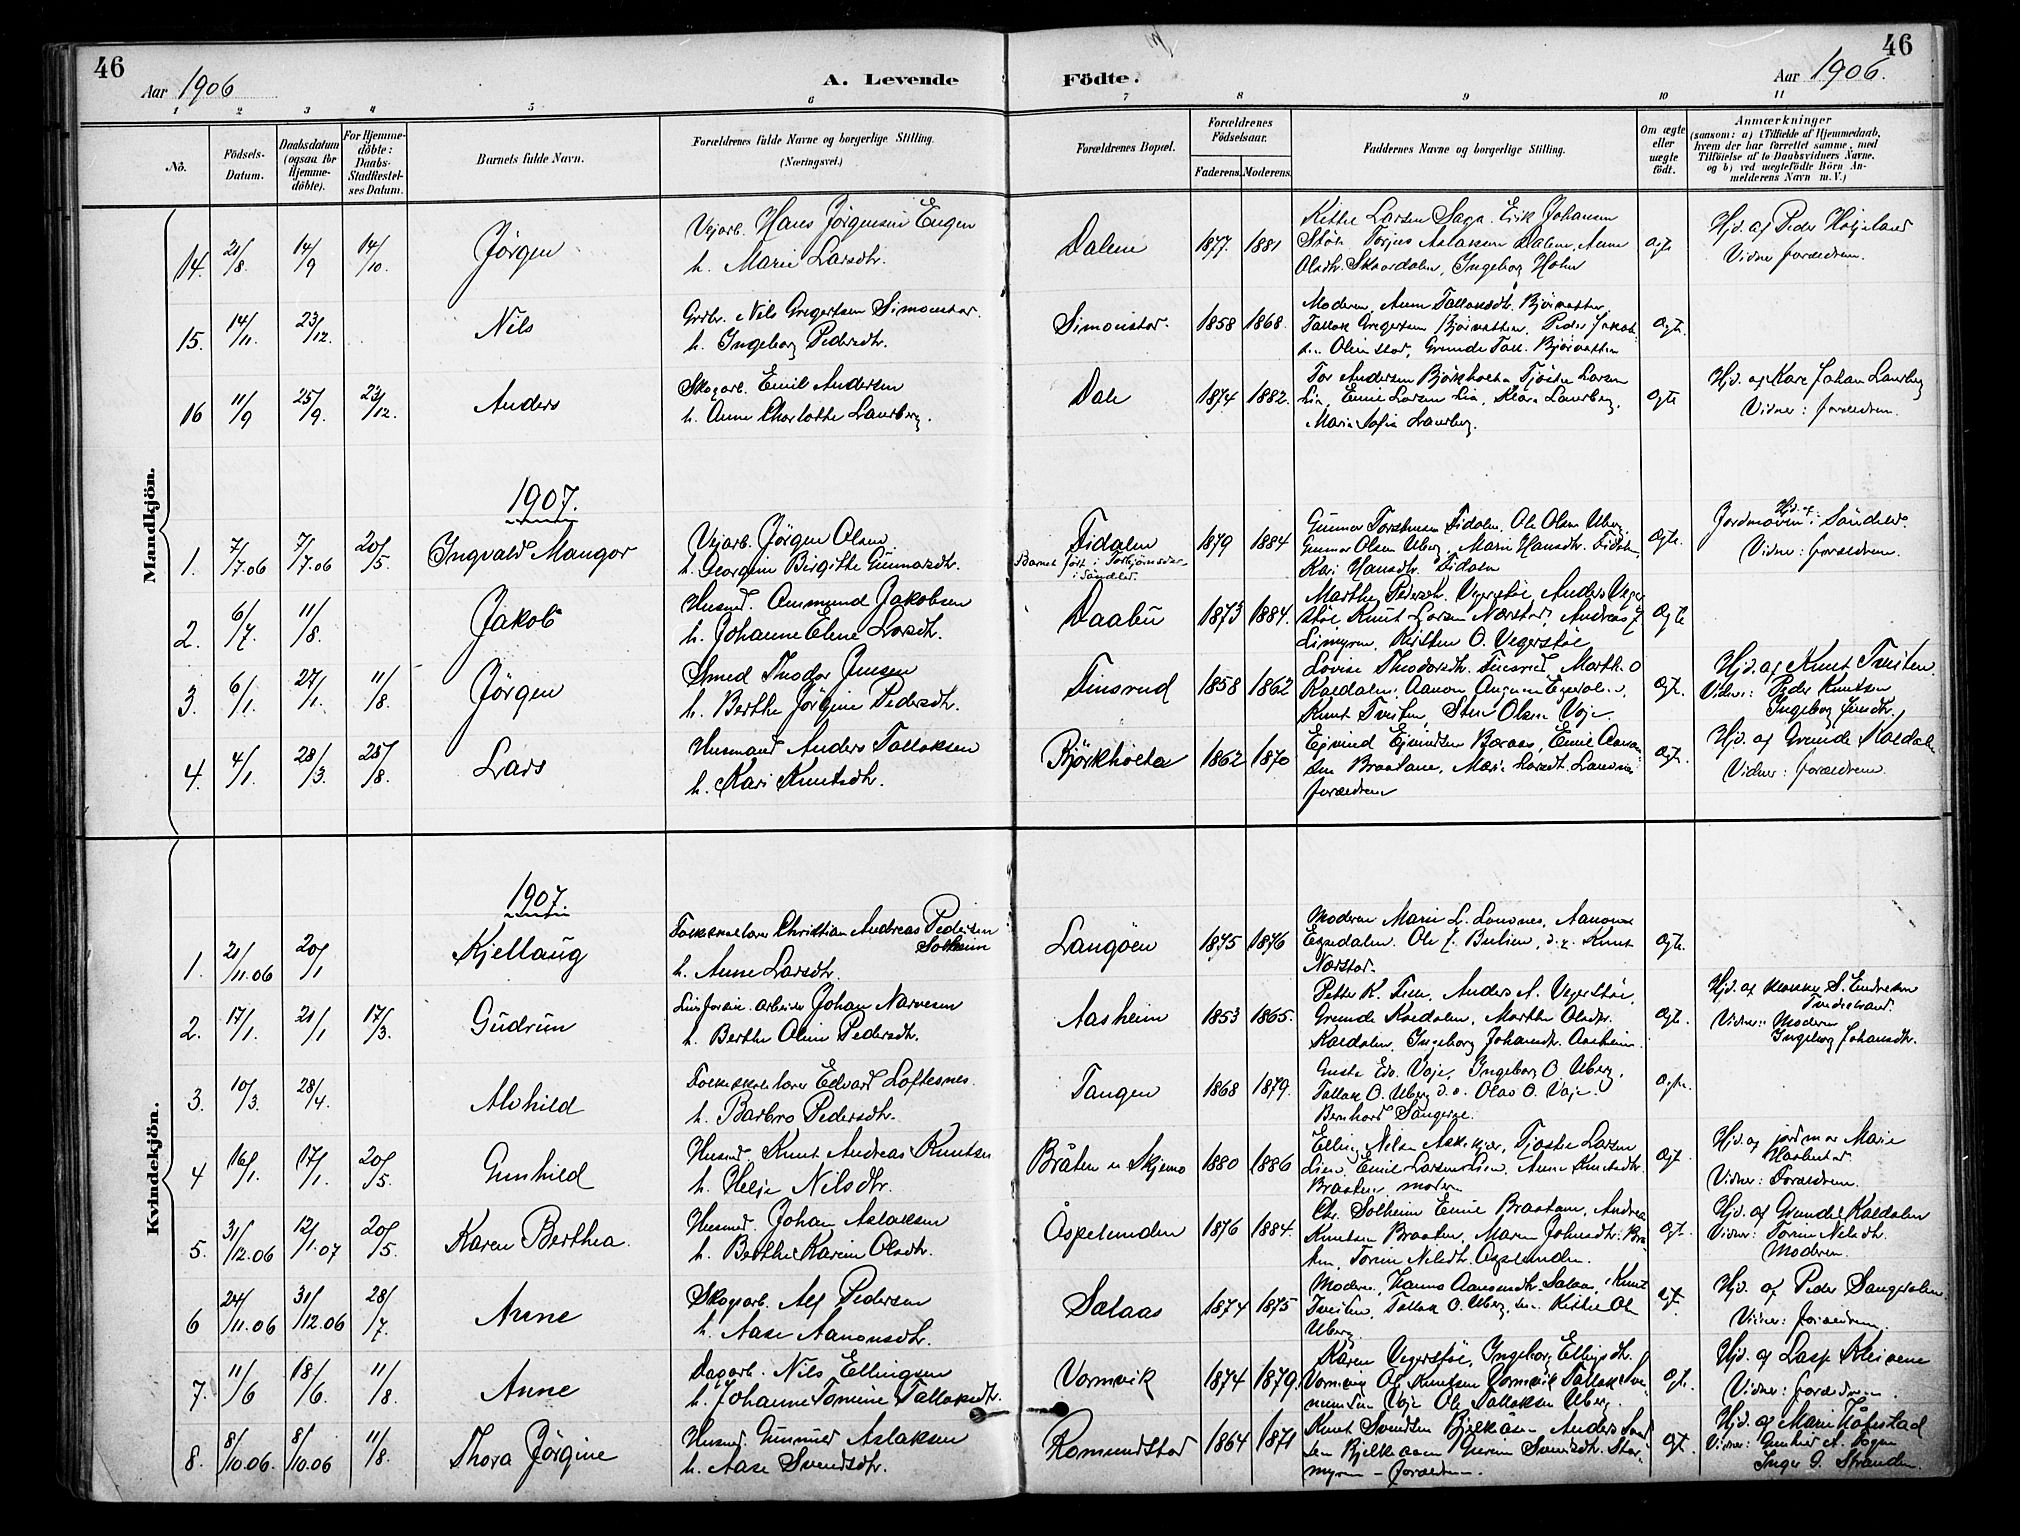 46
Aar 1906
A. Levende
Födte.
Aar 1906.
46
1 2 3 4 5 6 7 8 9 10 11
Nö.
Födsels-Datum.
Daabsdatum (ogsaa for Hjemme-döbte).
For Hjemme-döbte: Daabs-Stadfæstel-ses Datum.
Barnets fulde Navn.
Forældrenes fulde Navne og borgerlige Stilling. (Næringsvei.)
Forældrenes Bopæl.
Forældrenes Födselsaar.
Faderens. Moderens.
Faddernes Navne og borgerlige Stilling.
Om ægte eller uægte födt.
Anmærkninger
(saasom: a) i Tilfælde af Hjemmedaab, hvem der har forrettet samme, med Tilföielse af to Daabsvidners Navne, og b) ved uægtefödte Börn An-melderens Navn m. V.)
Mandkjön.
14. 21/8. 14/9 14/10. Jörgen
Vejarb. Hans Jörgensen Eugen
h. Marie Larsdtr.
Dalen 1877. 1881
Kittel Larsen Saga. Erik Johansen
Törjus Aslaksen Dalen, Anne
Olsdtr. Skaardalen, Ingeborg Holm
Ægte
Hjd. af Peder Höjeland
Vidner forældrene.
15. 14/11. 23/12. Nils
Grbr. Nils Gregertsen Simonstad.
h. Ingeborg Pedersdtr.
Simonstad. 1858 1868.
Moderen, Anne Tallaksdtr. Bjorvatten
Tallak Gregertsen Bjorvatten, Peder Jakob-
sen Olimstad, Grunde Tall. Bjorvatten
Ægte
16 11/9 25/9. 23/12. Anders
Skogarb. Emil Andersen
h. Anne Charlotte Laurberg.
Dale 1874 1882.
Tor Andersen Björkholta Tjöstel Larsen
Lia, Emil Larsen Lia, Klara Laurberg,
Marie Sofie Laurberg.
Ægte
Hjd. af Kare Johan Laurberg
Vidner: forældrene.
1907.
1. 7/7.06 7/7.06 20/5. Ingvald Mangor
Vejarb. Jörgen Olsen
h. Georgine Birgitte Gunnarsdtr.
Fidalen 1879 1884
Barnet født i Torbjörnsdal
i Söndeled.
Gunnar Torstensen Fidalen. Ole Olsen Uberg
Gunnar Olsen Uberg, Marie Hansdtr. Fidalen
Kari Hansdtr. Fidalen
Ægte.
Hjd. af
Jordmoren i Söndeled.
Vidner: forældrene.
2. 6/7 11/8. Jakob
Husmd. Ammund Jakobsen
h. Johanne Elene Larsdtr.
Daabu 1873 1884.
Marthe Pedersdtr. Vegerstöl, Anders Veger
stöl Knut Larsen Nærstad, Andreas J
Limyren, Kristen O. Vegerstöl
Ægte
3. 6/1. 27/1. 11/8 Jörgen
Smed Theodor Jensen
h. Berthe Jörgine Pedersdtr.
Finsrud 1858 1862
Lovise Theodorsdtr. Finsrud Marthe O
Kaledalen, Aanon
Knut Tveiten, Sten Olsen Voje.
Ægt.
Hjd. af Knut Tveiten
Vidner: Peder Knutsen
Ingeborg Jensdtr.
4. 4/1. 28/3. 25/8. Lars
Husmand Anders Tallaksen
h. Kari Knutsdtr.
Björkholta 1862 1870
Ejvind Ejvindsen Boraas, Emil Aanon
sen Braatane, Marie Larsdt. Landnes
forældrene
Ægt.
Hjd. af Grunde Kaledalen
Vidner: forældrene.
Kvindekjön.
1907.
1. 21/11.06 20/1 Kjellaug
Folkeskolelærer Christian Andreas Pedersen
Solheim
h. Anne Larsdtr.
Langöen 1875 1876
Moderen Marie L. Landnes, Aanon
Egsedalen. Ole J. Berlien, d.y. Knut
Nærstad.
Ægte.
2. 17/1. 21/1 17/3. Gudrun
arbeider Johan Narvesen
h. Berthe Oline Pedersdtr.
Aasheim 1853 1865.
Petter K. Anders A. Vegerstöl,
Grunde Kaledalen, Marthe Olsdtr.
Kaledalen, Ingeborg Johansdtr. Aasheim.
Ægt.
Hjd. af S. Endresen
Tvedestrand.
Vidner: Moderen
Ingeborg Johansdtr.
3. 10/3. 28/4. Alvhild
Folkeskolelærer Edvard Loftesnes.
h. Barbro Pedersdtr.
Tangen 1868 1879.
Guste Ed. Voje, Ingeborg O. Uberg,
Tallak O. Uberg Olav O. Voje.
Bernhard
Ægte.
4 16/1. 17/1. 20/5. Gunhild
Husmd. Knut Andreas Knutsen
h. Helje Nilsdtr.
Bråten u Skjernö 1880 1886
Elling Nilsen Askekjær, Tjöstel Larsen
Lien, Emil Larsen Lien, Anne Knutsdtr.
Braaten, moderen
Ægt.
Hjd. af jordmor Marie
Vidner: Forældrene.
5. 31/12.06 12/1.07 20/5. Karen Berthea
Husmd. Johan Aslaksen
h. Berthe Karine Olsdtr.
Åspelunden 1876 1884.
Chr. Solheim Emil Braatane, Andreas
Knutsen Braaten, Maren Johnsdtr. Bra-
ten, Torine Nilsdtr. Aspelunden.
Ægt.
Hjd. af Grunde Kaledalen
Vidner: Torine Nilsdtr.
Moderen.
6 24/11.06 31/12.06 28/7. Anne
Skogsarb. Alf Pedersen
h. Aase Aanonsdtr.
Salaas 1874 1875
Moderen, Hanna Aanonsdtr. Salaas, Knut
Tveiten, Tallak O. Uberg, Kittel Ol
Uberg.
Ægt.
Hjd. af Peder
Vidner: forældrene.
7. 11/6 18/6. 11/8. Anne
Dagarb. Nils Ellingsen
h. Johanne Tomine Tallaksdtr.
Vormvik 1874 1879.
Karen Vegerstöl, Ingeborg Ellingsdtr.
Vormvik Ole Knutsen Vormvik Tallak
Voje Ole Tallaksen Uberg.
Ægt.
Hjd. af Kleivene
Vidner: forældrene.
8. 8/10.06. 8/10.06 11/8. Thora Jörgine
Husmd. Gunmed Aslaksen
h. Aase Svendsdtr.
Romundstad 1864 1871
Knut Svendsen Bjelkåsen Anders
Bjelkåsen Gurine Svendsdtr. Stor-
myren – forældrene.
Ægt.
Hjd. af Marie Håbestad
Vidner: Gunhild
Inger G. Stranden.